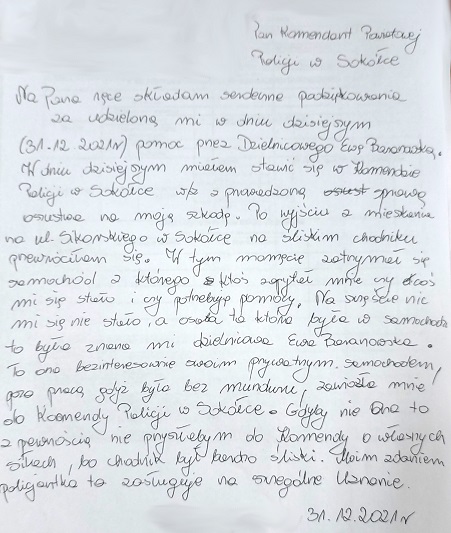 Pan Komendant Powiatowej
Policji w Sokółce
Na Pana ręce składam serdeczne podziękowania
za udzieloną mi w dniu dzisiejszym
(31.12.2021r) pomoc przez Dzielnicowego Ewę Baranowską.
W dniu dzisiejszym miałem stawić się w Komendzie
Policji w Sokółce w/z z prowadzoną sprawą
oszustwa na moją szkodę. Po wyjściu z mieszkania
na ul. Sikorskiego w Sokółce na śliskim chodniku
przewróciłem się. W tym momencie zatrzymał się
samochód z którego ktoś zapytał mnie czy coś
mi się stało i czy potrzebuję pomocy. Na szczęście nic
mi się nie stało, a osoba ta która była w samochodzie
to była znana mi dzielnicowa Ewa Baranowska.
To ona bezinteresownie swoim prywatnym samochodem,
poza pracą gdyż była bez munduru, zawiozła mnie
do Komendy Policji w Sokółce. Gdyby nie ona to
z pewnością nie przyszedłbym do Komendy o własnych
siłach, bo chodnik był bardzo śliski. Moim zdaniem
policjantka ta zasługuje na szczególne uznanie.
31.12.2021r